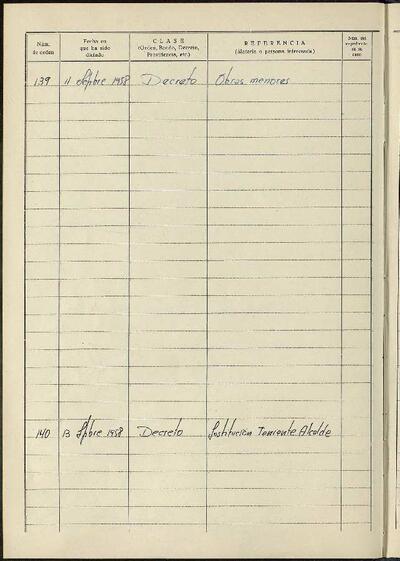 Núm. de orden
Fecha en que ha sido dictado
CLASE
(Orden, Bando, Decreto, Providencia, etc.)
REFERENCIA
(Materia o persona interesada)
Núm. del expediente
139 11 Spbre 1958 Decreto Obras menores
140 13 Spbre 1958 Decreto Sustitución Teniente Alcalde